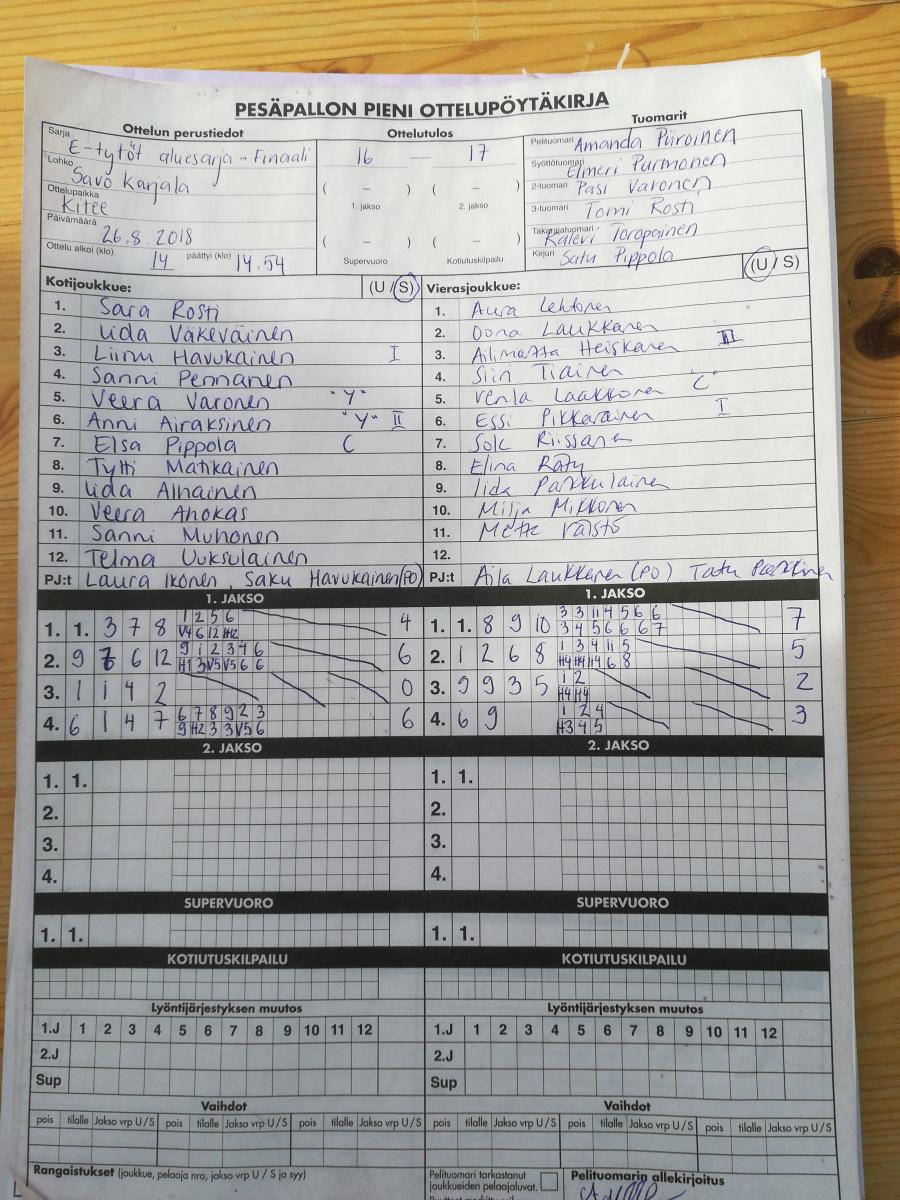 PESÄPALLON PIENI OTTELUPÖYTÄKIRJA
Ottelun perustiedot
Ottelutulos
Tuomarit
Sarja E-tytöt aluesarja - Finaali
Lohko Savo Karjala
Ottelupaikka Kitee
Päivämäärä 26.8.2018
Ottelu alkoi (klo) 14 päättyi (klo) 14.54
16 — 17
( – ) ( – )
1. jakso 2. jakso
( – ) ( – )
Supervuoro Kotiutuskilpailu
Pelituomari Amanda Piiroinen
Syöttötuomari Elmeri Purmonen
2-tuomari Pasi Varonen
3-tuomari Tomi Rosti
Takarajatuomari Kalevi Toropainen
Kirjuri Satu Pippola
Kotijoukkue: (U / S)
1. Sara Rosti
2. Iida Väkeväinen
3. Linnu Havukainen I
4. Sanni Pennanen
5. Veera Varonen "Y"
6. Anni Airaksinen "Y" II
7. Elsa Pippola C
8. Tytti Matikainen
9. Iida Alhainen
10. Veera Ahokas
11. Sanni Muhonen
12. Telma Uuksulainen
PJ:t Laura Ikonen, Saku Havukainen (PO)
Vierasjoukkue: (U / S)
1. Aura Lehtonen
2. Oona Laukkanen
3. Heiskanen II
4. Siiri Tiainen
5. Venla Laakkonen "C"
6. Essi Pikkarainen I
7. Riissanen
8. Elina Räty
9. Iida Parkkulainen
10. Milja Mikkonen
11. Mette Väistö
12.
PJ:t Aila Laukkanen (PO) Tatu
1. JAKSO
1. 1. 3 7 8 1 2 5 6 4
V4 6 12 H12
2. 9 7 6 12 9 1 2 3 4 6 6
H1 3 V5 V5 6 6
3. 1 1 4 2 0
4. 6 1 4 7 6 7 8 9 2 3 6
9 H2 3 3 V5 6
1. JAKSO
1. 1. 8 9 10 3 3 11 4 5 6 6 7
3 4 5 6 6 6 7
2. 1 2 6 8 1 3 4 11 5 5
H4 H4 H4 6 8
3. 9 9 3 5 1 2 2
H4 H4
4. 6 9 1 2 4 3
H3 4 5
2. JAKSO
1. 1.
2.
3.
4.
2. JAKSO
1. 1.
2.
3.
4.
SUPERVUORO
1. 1.
SUPERVUORO
1. 1.
KOTIUTUSKILPAILU
KOTIUTUSKILPAILU
Lyöntijärjestyksen muutos
1.J 1 2 3 4 5 6 7 8 9 10 11 12
2.J
Sup
Lyöntijärjestyksen muutos
1.J 1 2 3 4 5 6 7 8 9 10 11 12
2.J
Sup
Vaihdot
pois tilalle Jakso vrp U / S pois tilalle Jakso vrp U / S pois tilalle Jakso vrp U / S
Vaihdot
pois tilalle Jakso vrp U / S pois tilalle Jakso vrp U / S pois tilalle Jakso vrp U / S
Rangaistukset (joukkue, pelaaja nro, jakso vrp U / S ja syy)
Pelituomari tarkastanut
joukkueiden pelaajaluvat.
Pelituomarin allekirjoitus